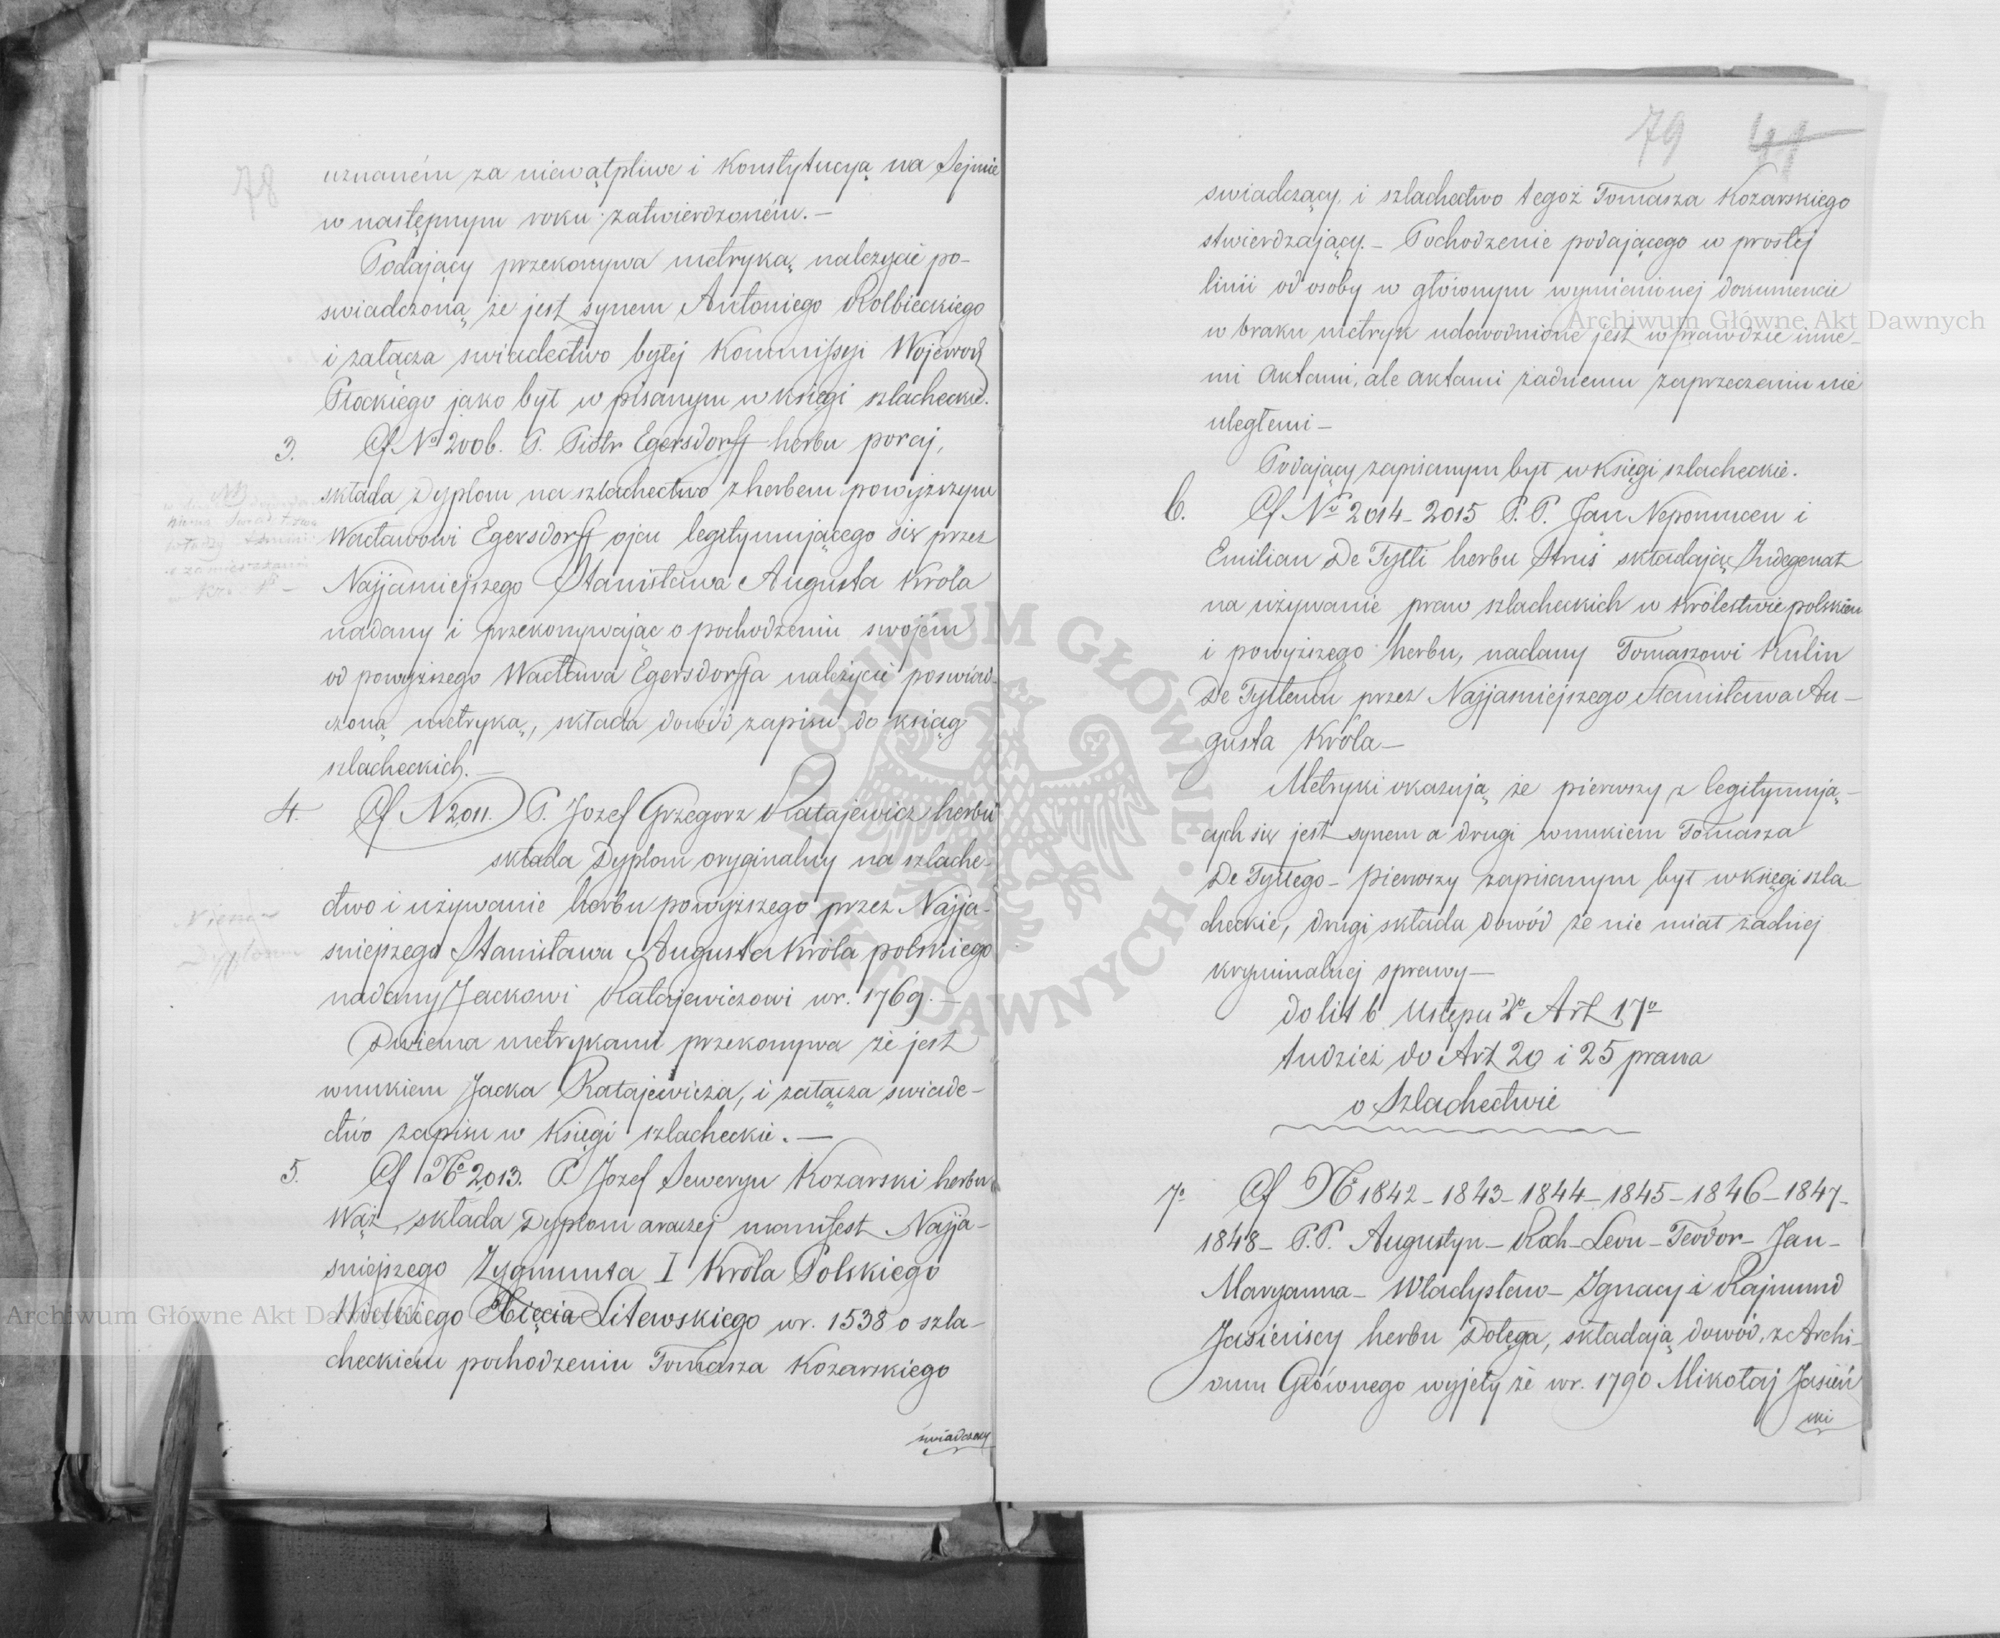 78
uznaném za niewątpliwe i Konstytucyą na Sejmie
w następnym roku zatwierdzoném. –
Podający przekonywa metryką należycie po-
swiadczoną że jest synem Antoniego Rolbieckiego
i załącza swiadectwo byłej Kommissyi Wojewod
Płockiego jako był wpisanym w księgi szlacheckie.
3. Cf No 2006. P. Piotr Egersdorff herbu poraj,
składa Dyplom na szlachectwo z herbem powyższym
Wacławowi Egersdorff ojcu legitymującego się przez
Najjasniejszego Stanisława Augusta Króla
nadany i przekonywając o pochodzeniu swojém
od powyższego Wacława Egersdorffa należycie poswiad-
czoną metryką, składa dowód zapisu do ksiąg
szlacheckich. –
4. Cf N 2011. P. Jozef Grzegorz Ratajewicz herbu
składa Dyplom oryginalny na szlache-
ctwo i używanie herbu powyższego przez Najja-
sniejszego Stanisława Augusta Króla polskiego
nadany Jackowi Ratajewiczowi w r. 1769. –
Dwiema metrykami przekonywa że jest
wnukiem Jacka Ratajewicza, i załącza swiade-
ctwo zapisu w Księgi szlacheckie. –
Niema
Dyplomu
5. Cf No 2013. P Jozef Seweryn Kozarski herbu
Wąż, składa Dyplom raczej manifest Najja-
sniejszego Zygmunta I Króla Polskiego
Wielkiego Xięcia Litewskiego w r. 1538 o szla-
checkiém pochodzeniu Tomasza Kozarskiego
swiadczący
79 41
swiadczący i szlachectwo tegoż Tomasza Kozarskiego
stwierdzający. – Pochodzenie podającego w prostej
linii od osoby w głównym wymienionej dokumencie
w braku metryk udowodnione jest wprawdzie inne-
mi Aktami, ale aktami żadnemu zaprzeczeniu nie
uległemi –
Podający zapisanym był w Księgi szlacheckie.
6. Cf No 2014 – 2015 P. P. Jan Nepomucen i
Emilian De Tylli herbu Struś składają Indegenat
na używanie praw szlacheckich w Królestwie polskiem
i powyższego herbu, nadany Tomaszowi Kulin
De Tyllemu przez Najjasniejszego Stanisława Au-
gusta Króla –
Metryki okazują że pierwszy z legitymują-
cych się jest synem a drugi wnukiem Tomasza
De Tyllego – pierwszy zapisanym był w księgi szla-
checkie, drugi składa dowód że nie miał żadnej
kryminalnej sprawy –
do lit b Ustępu 2o Art 17o
tudzież do Art 20 i 25 prawa
o Szlachectwie
7o Cf No 1842 – 1843 – 1844 – 1845 – 1846 – 1847 –
1848 – P.P. Augustyn – Roch – Leon – Teodor – Jan –
Maryanna – Władysław – Ignacy i Rajmund
Jasieńscy herbu Dołęga, składają dowód, z Archi-
wum Głównego wyjęty że w r. 1790 Mikołaj Jasień
ski
Archiwum Główne Akt Dawnych
Archiwum Główne Akt Dawnych
ARCHIWUM GŁÓWNE • AKT DAWNYCH •